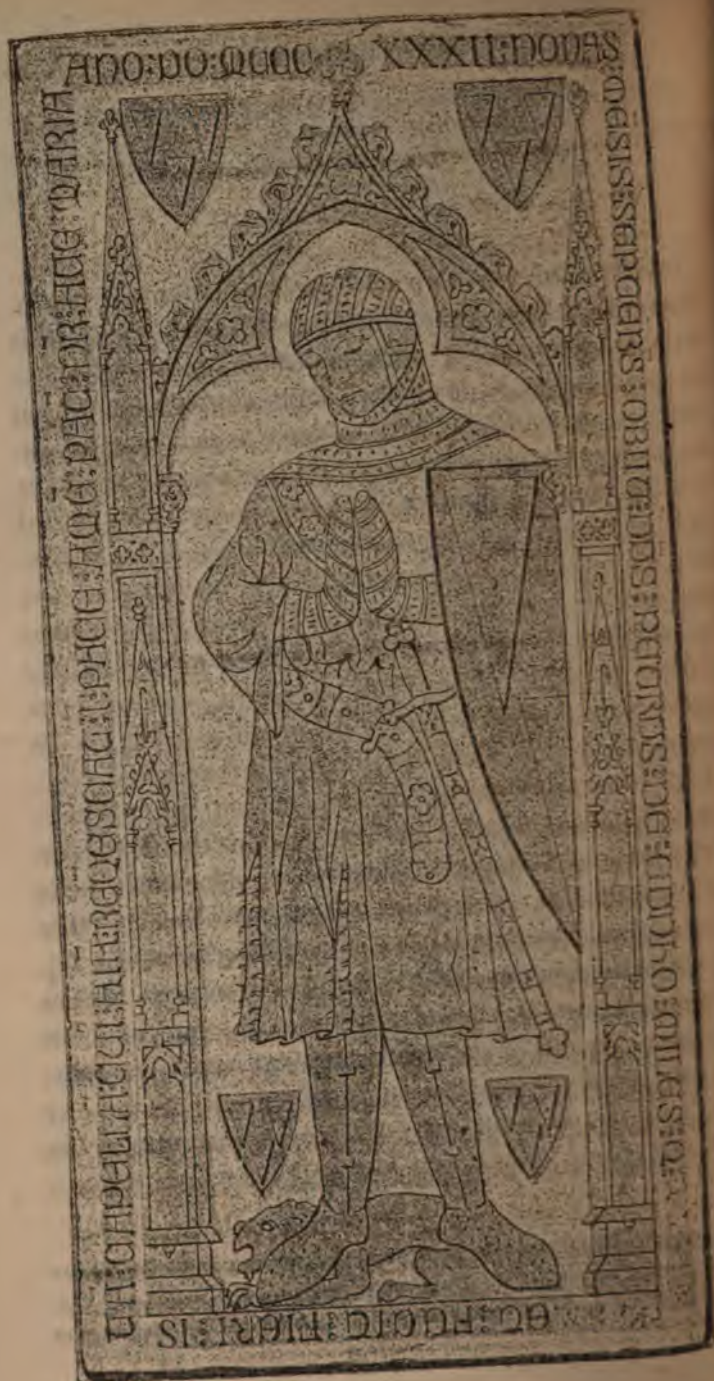 ANO : DO : MCCC XXXII : NONAS
MESIS : SEPTEBRS : OBIIT : DNS : PETRUS : DE : : MILES : Q
ET : FECIT : FIERI : IS
TA : CAPELLA : CUI : AIA : REQESCAT : I : PACE : AME : PAT : NR : AUE : MARIA